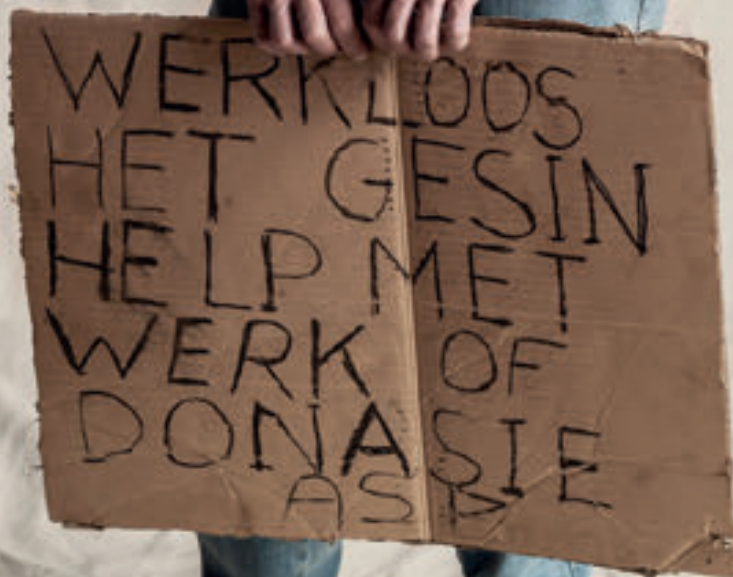 WERKLOOS
HET GESIN
HELP MET
WERK OF
DONASIE
ASB